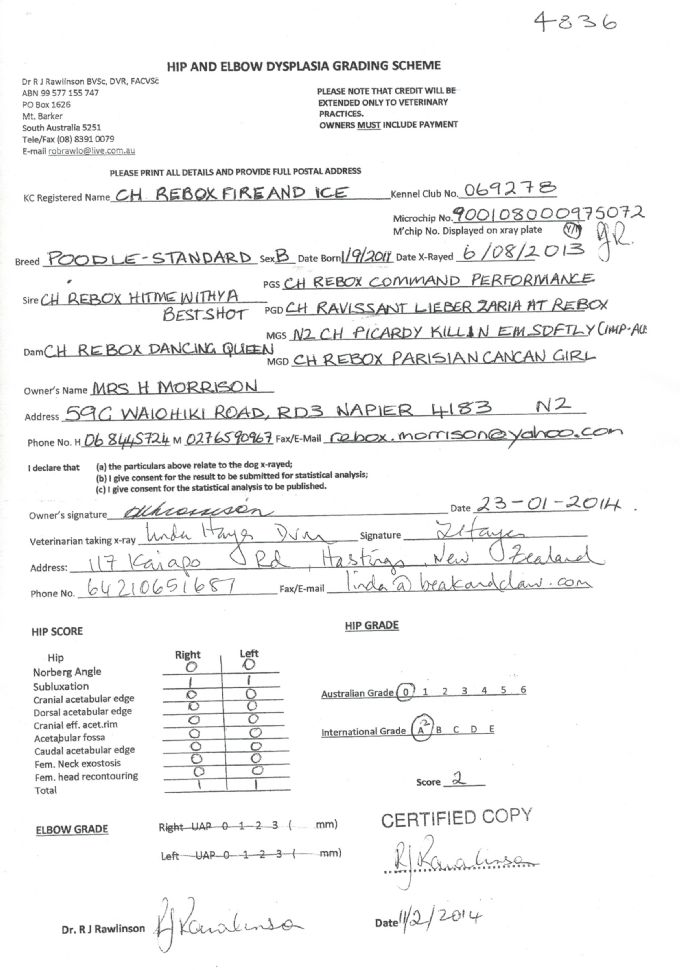 4836
HIP AND ELBOW DYSPLASIA GRADING SCHEME
Dr R J Rawlinson BVSc, DVR, FACVSc
ABN 99 577 155 747
PO Box 1626
Mt. Barker
South Australia 5251
Tele/Fax (08) 8391 0079
E-mail robrawlo@live.com.au
PLEASE NOTE THAT CREDIT WILL BE
EXTENDED ONLY TO VETERINARY
PRACTICES.
OWNERS MUST INCLUDE PAYMENT
PLEASE PRINT ALL DETAILS AND PROVIDE FULL POSTAL ADDRESS
KC Registered Name CH REBOX FIRE AND ICE Kennel Club No. 069278
Microchip No. 900108000975072
M'chip No. Displayed on xray plate Y/N JR.
Breed POODLE-STANDARD Sex B Date Born 1/9/2011 Date X-Rayed 6/08/2013
PGS CH REBOX COMMAND PERFORMANCE
Sire CH REBOX HITME WITHYA BEST SHOT
PGD CH RAVISSANT LIEBER ZARIA AT REBOX
MGS NZ CH PICARDY KILLIN EM SOFTLY (IMP-AU
Dam CH REBOX DANCING QUEEN
MGD CH REBOX PARISIAN CANCAN GIRL
Owner's Name MRS H MORRISON
Address 59C WAIOHIKI ROAD, RD3 NAPIER 4183 NZ
Phone No. H 06 8445724 M 0276590967 Fax/E-Mail rebox.morrison@yahoo.com
I declare that (a) the particulars above relate to the dog x-rayed;
(b) I give consent for the result to be submitted for statistical analysis;
(c) I give consent for the statistical analysis to be published.
Owner's signature Date 23-01-2014.
Veterinarian taking x-ray Linda Hayes DVM Signature LHayes
Address: 117 Kaiapo Rd, Hastings, New Zealand
Phone No. 64210651687 Fax/E-mail linda@beakandclaw.com
HIP SCORE
HIP GRADE
Hip Right Left
Norberg Angle 0 0
Subluxation 1 1
Cranial acetabular edge 0 0
Dorsal acetabular edge 0 0
Cranial eff. acet.rim 0 0
Acetabular fossa 0 0
Caudal acetabular edge 0 0
Fem. Neck exostosis 0 0
Fem. head recontouring 0 0
Total 1 1
Australian Grade 0 1 2 3 4 5 6
International Grade A2 B C D E
Score 2
ELBOW GRADE
Right UAP 0 1 2 3 ( mm)
Left UAP 0 1 2 3 ( mm)
CERTIFIED COPY
RJ Rawlinson
Dr. R J Rawlinson RJ Rawlinson
Date 11/2/2014